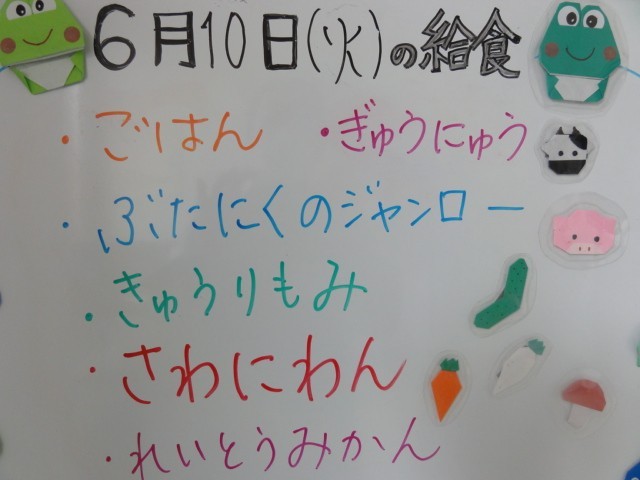 6月10日(火)の給食
・ごはん ・ぎゅうにゅう
・ぶたにくのジャンロー
・きゅうりもみ
・さわにわん
・れいとうみかん